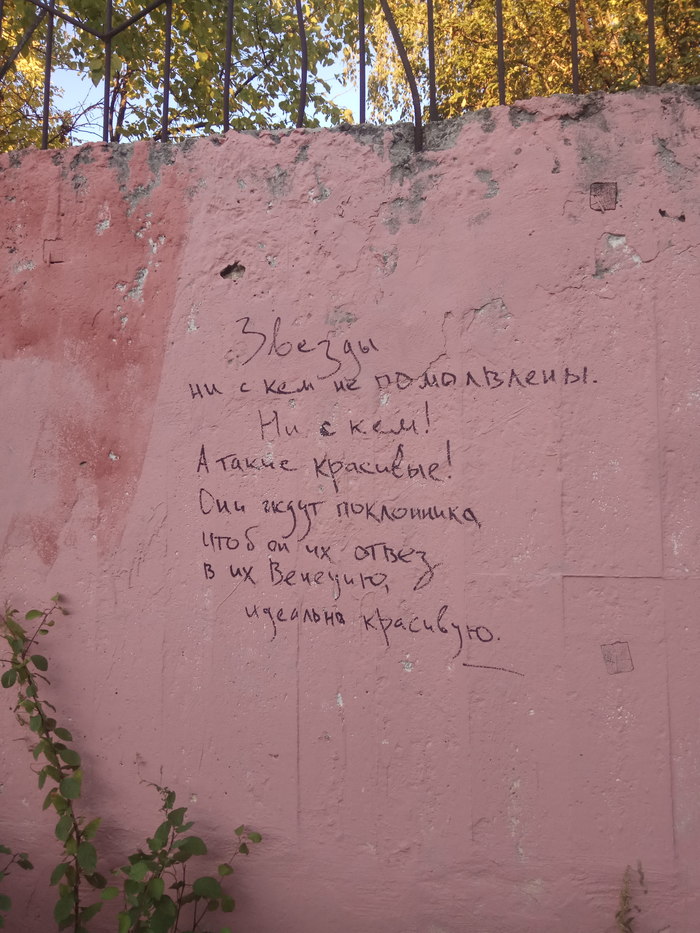 Звезды
ни с кем не помолвлены.
Ни с кем!
А такие красивые!
Они ждут поклонника,
чтоб он их отвез
в их Венецию,
идеально красивую.